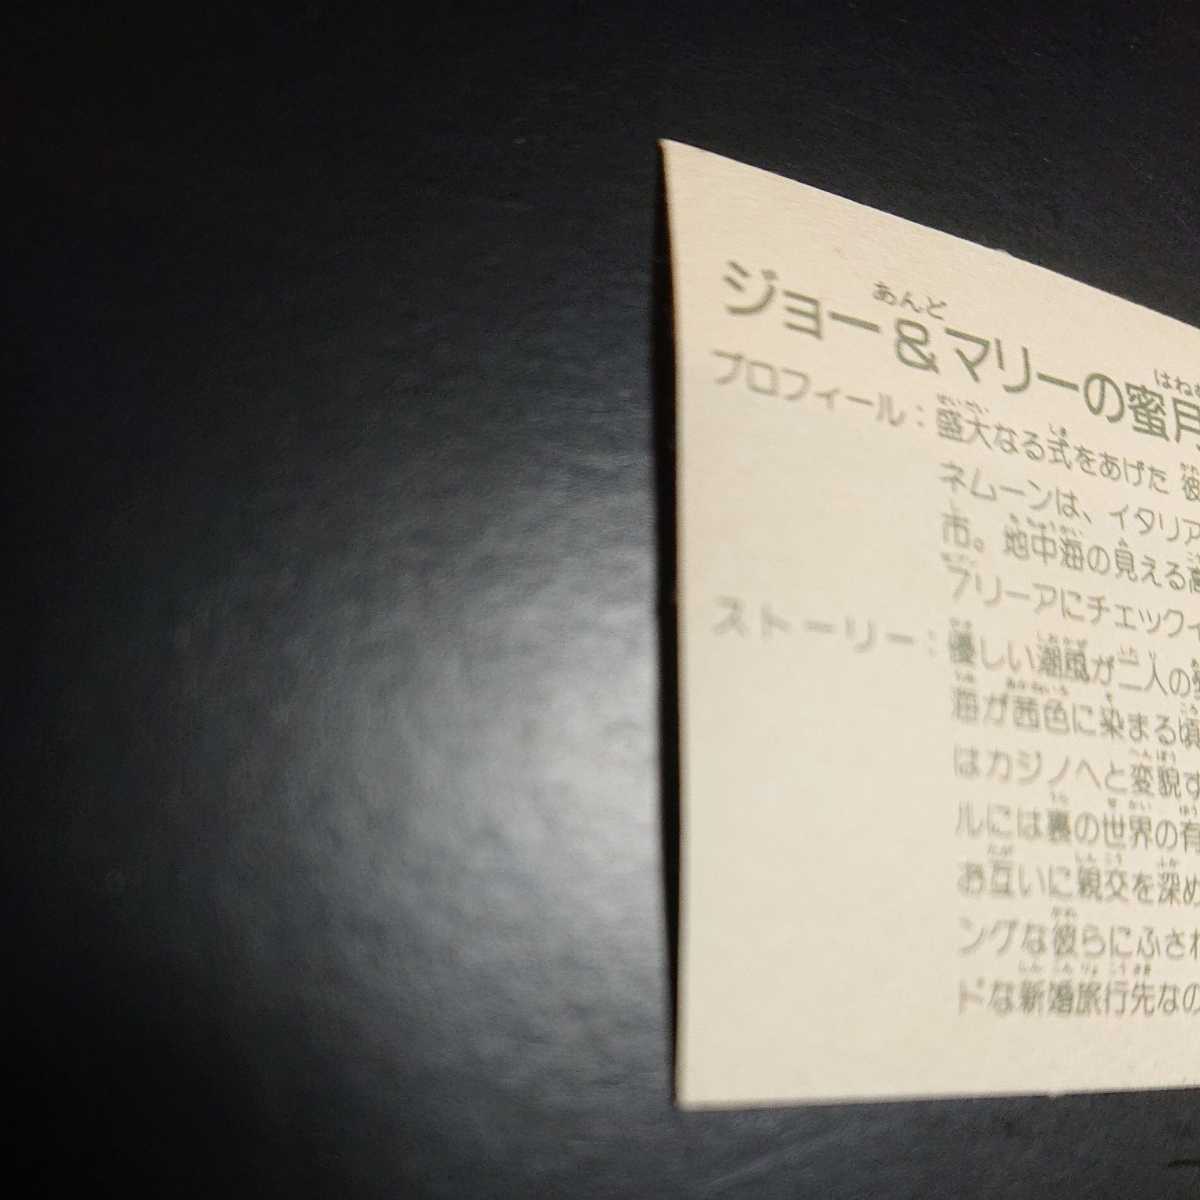 ジョー&マリーの蜜月
プロフィール：盛大なる式をあげた 彼
ネムーンは、イタリア
市。地中海の見える高
ブリーアにチェックイ
ストーリー：優しい潮風が二人の
海が茜色に染まる頃
はカジノへと変貌す
ルには裏の世界の有
お互いに親交を深め
ングな彼らにふさわ
ドな新婚旅行先なの